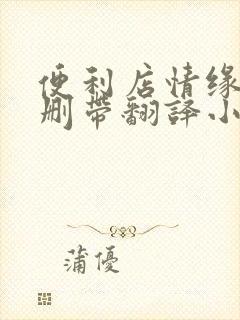 便利店情缘
删带翻译小
蒲優